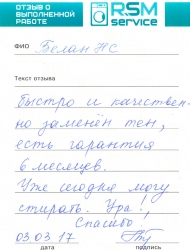 ОТЗЫВ О
ВЫПОЛНЕННОЙ
РАБОТЕ
RSM
service
ФИО Белан НС
Текст отзыва
Быстро и качествен-
но заменён тен,
есть гарантия
6 месяцев.
Уже сегодня могу
стирать. Ура!,
Спасибо.
03 03 17
дата подпись